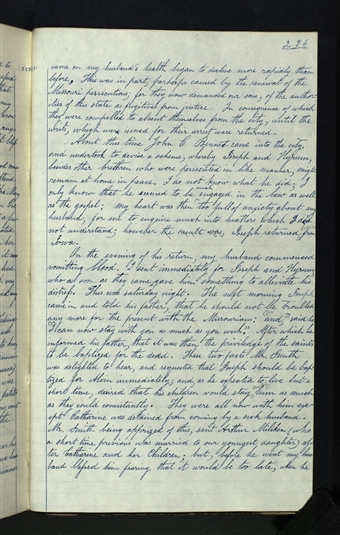 226
came on my husband's health began to decline more rapidly than
before. This was in part, perhaps caused by the renewal of the
Missouri persecutions; for they now demanded our sons, of the author-
ities of this state as fugitives from justice. In consequence of which
they were compelled to absent themselves from the city, untill the
writs, which were issued for their arrest were returned.
About this time John C Bennet came into the city,
and undertook to devise a scheme, whereby Joseph and Hyrum,
besides other brethren who were persecuted in like manner, might
remain at home in peace. I do not know what he did; I
only know that he seemed to be engaged in the law as well
as the gospel; my heart was then too full of anxiety about my
husband, for me to enquire much into matters which I did
not understand; however the result was, Joseph returned from
Iowa.
On the evening of his return, my husband commenced
vomitting blood. I sent immediately for Joseph and Hyrum,
who as soon as they came gave him something to alleviate his
distress. This was saturday night. The next morning Joseph
came in and told his father, that he should not be troubled
any more for the present with the Missourians; "and" said he
"I can now stay with you as much as you wish". After which he
informed his father, that it was then the priviledge of the saints
to be baptized for the dead. These two facts Mr. Smith
was delighted to hear, and requested that Joseph should be bap-
tized for Alvin immediately; and as he expected to live but a
short time, desired that his children would stay with him as much
as they could constantly. They were all now with him ex-
cept Catharine was detained from coming by a sick husband.
Mr. Smith being apprised of this, sent Arthur Miliken, (who
a short time previous was married to our youngest daughter) af-
ter Catharine and her Children; but, before he went my hus-
band blessed him fearing that it would be too late, when he